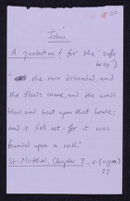 John
A quotation! for the "safe
box")
"and the rain descended, and
the floods came, and the winds
blew, and beat upon that house;
and it fell not: for it was
founded upon a rock."
St. Matthew, Chapter 7. v.
27